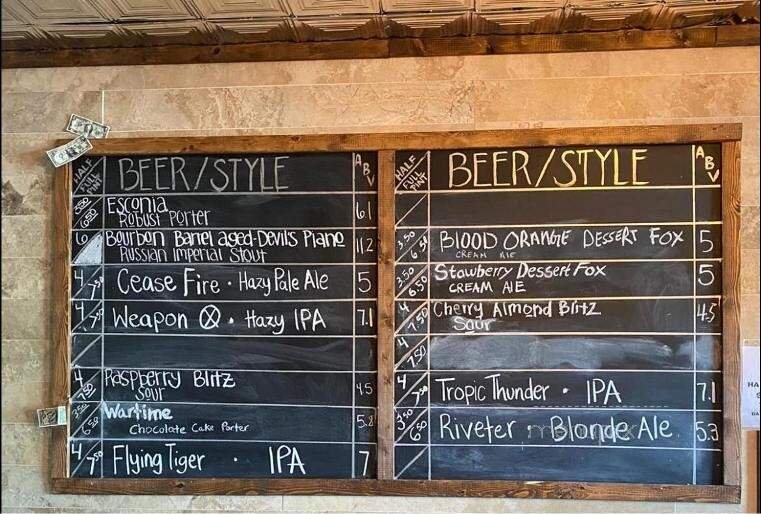 HALF FULL PINT BEER/STYLE ABV
3.50 6.50 Esconia 6.1
Robust Porter
6 Bourbon Barrel aged-Devils Piano 11.2
Russian Imperial Stout
4 7.50 Cease Fire • Hazy Pale Ale 5
4 7.50 Weapon X • Hazy IPA 7.1
4 7.50 Raspberry Blitz 4.5
Sour
3.50 6.50 Wartime 5.8
Chocolate Cake Porter
4 7.50 Flying Tiger • IPA 7
HALF FULL PINT BEER/STYLE ABV
3.50 6.50 Blood Orange Dessert Fox 5
CREAM ALE
3.50 6.50 Stawberry Dessert Fox 5
CREAM ALE
4 7.50 Cherry Almond Blitz 4.5
Sour
4 7.50
4 7.50 Tropic Thunder • IPA 7.1
3.50 6.50 Riveter • Blonde Ale 5.3
HA